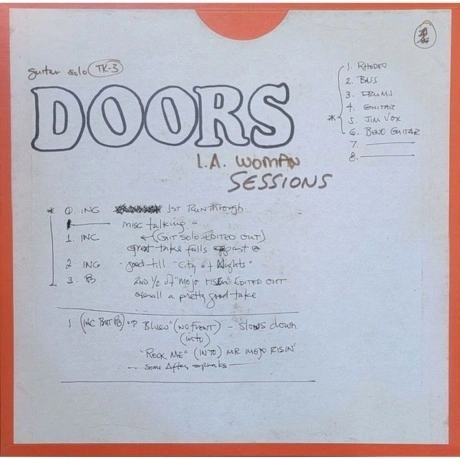 guitar solo TK-3
DOORS
L.A. WOMAN
SESSIONS
1. RHODES
2. BASS
3. DRUMS
4. GUITAR
* 5. JIM VOX
6. BENO GUITAR
7.
8.
* 0 INC 1st Run through
misc talking
1 INC (GIT SOLO EDITED OUT)
great take falls
2 INC good till "City of Nights"
3. B 2nd 1/2 of "MOJO RISIN" EDITED OUT
overall a pretty good take
1 (INC BUT B) "BLUES" (NO FRONT) - Slows down
(into)
"ROCK ME" (INTO) MR MOJO RISIN'
-- some After